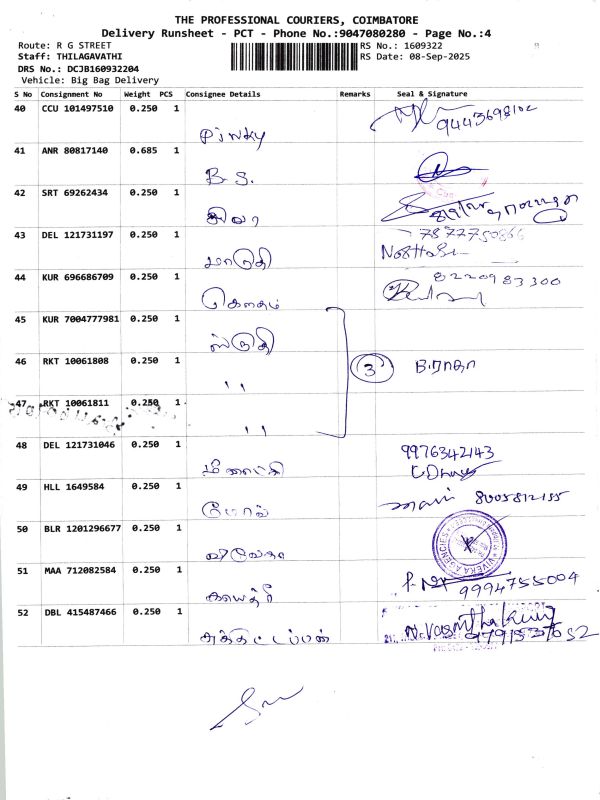 THE PROFESSIONAL COURIERS, COIMBATORE
Delivery Runsheet - PCT - Phone No.:9047080280 - Page No.:4
Route: R G STREET
RS No.: 1609322
Staff: THILAGAVATHI
RS Date: 08-Sep-2025
DRS No.: DCJB160932204
Vehicle: Big Bag Delivery
S No Consignment No Weight PCS Consignee Details Remarks Seal & Signature
40 CCU 101497510 0.250 1
Pinky 9443698102
41 ANR 80817140 0.685 1
B.S.
42 SRT 69262434 0.250 1
சிவா
43 DEL 121731197 0.250 1 7877750866
மாருதி
44 KUR 696686709 0.250 1 8220983300
கௌதம்
45 KUR 7004777981 0.250 1
ஸ்ருதி
46 RKT 10061808 0.250 1
" 3 B.ராதா
47 RKT 10061811 0.250 1
"
48 DEL 121731046 0.250 1 9976342143
மீனாட்சி
49 HLL 1649584 0.250 1 8005812155
50 BLR 1201296677 0.250 1
VIVEKA AGENCIES
51 MAA 712082584 0.250 1
காயத்ரி 9994755004
52 DBL 415487466 0.250 1
N.Vasantha
9791537652